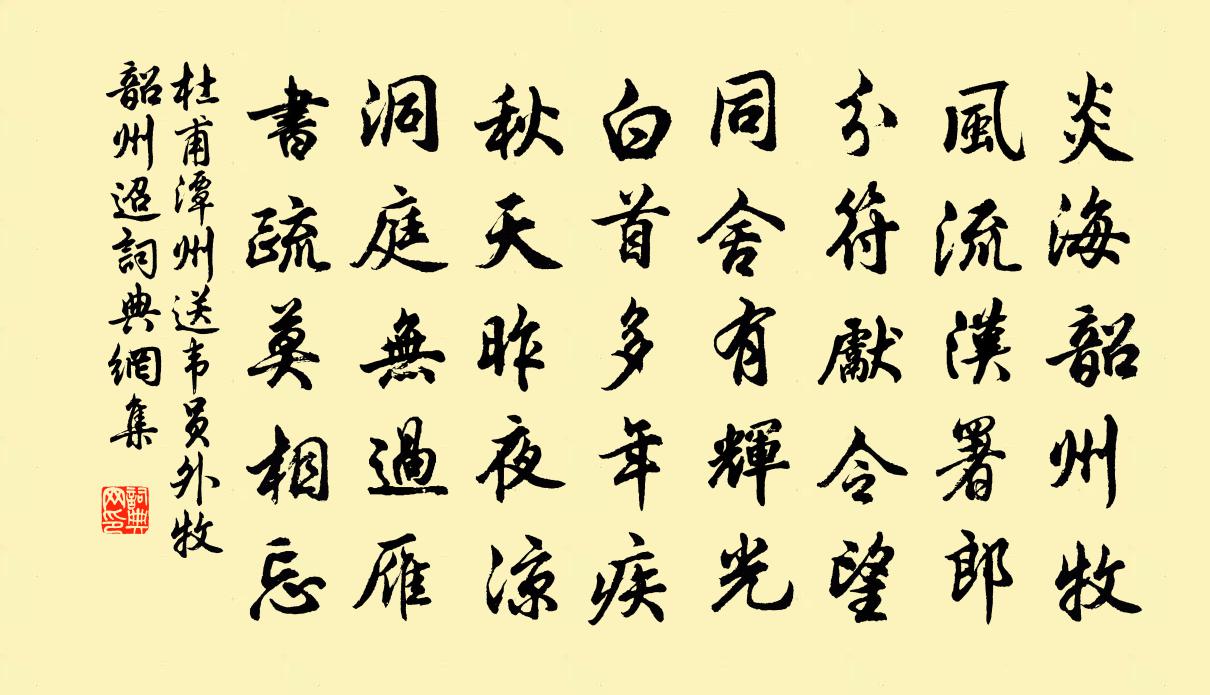 炎海韶州牧
風流漢署郎
分符獻令望
同舍有輝光
白首多年疾
秋天昨夜涼
洞庭無過雁
書疏莫相忘
杜甫潭州送韦员外牧
韶州迢詞典網集
詞典
网印